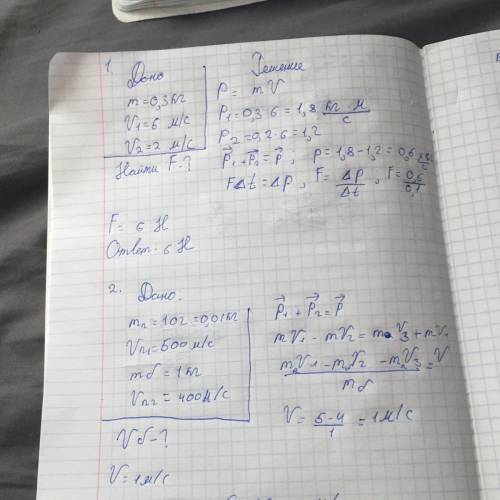 1.
Дано
m=0,3кг
V1=6 м/с
V2=2 м/с
Найти F-?
Решение
P= mV
P1=0,3·6=1,8 кг·м/с
P2=0,2·6=1,2
P⃗1+P⃗2=P⃗, p=1,8-1,2=0,6 кг·м/с
F∆t=∆p, F=∆p/∆t, F=0,6/0,1
F= 6 Н
Ответ: 6 Н
2. Дано.
mп=10г=0,01кг
Vп1=500м/с
mб=1кг
Vп2=400м/с
Vб-?
V=1м/с
P⃗1+P⃗2=P⃗
mV1-mV2=mV3+mV
mпV1-mпV2-mпV3/mб=V
V=5-4/1=1м/с